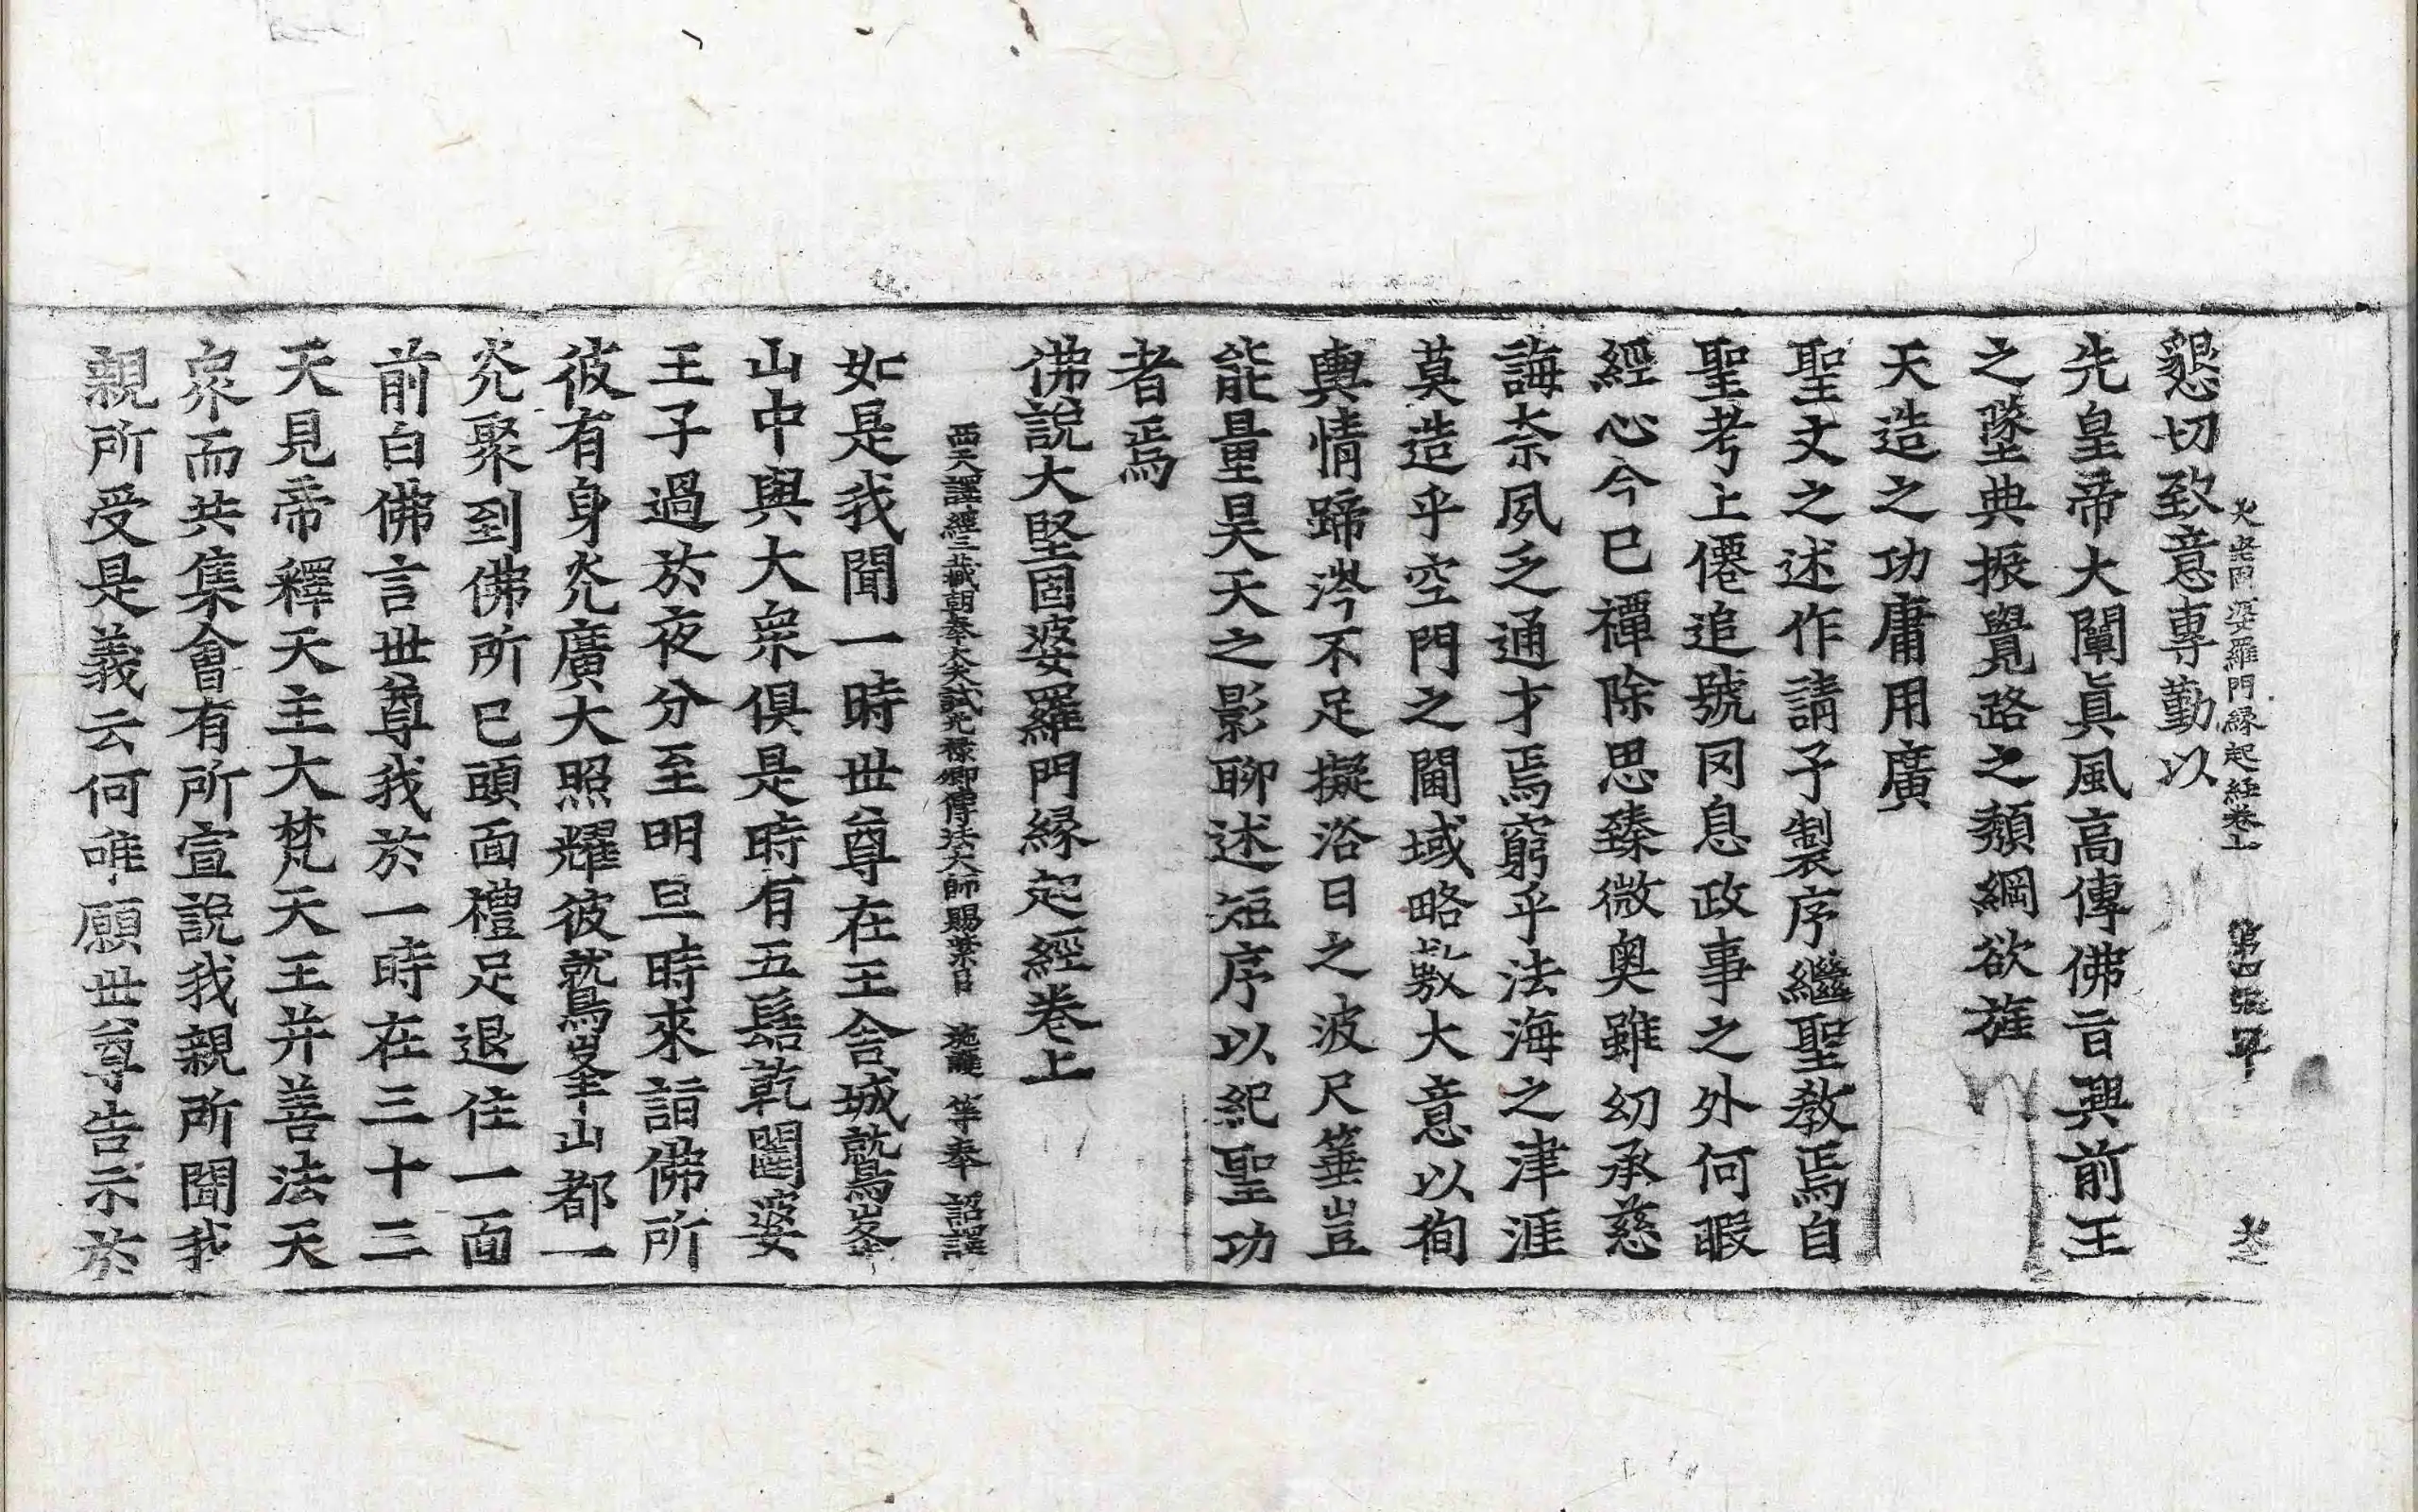 大堅固婆羅門縁起經卷上 第四張
懇切致意專勤以
先皇帝大闡眞風高傳佛旨興前王
之墜典振覺路之頽綱欲旌
天造之功庸用廣
聖文之述作請予製序繼聖教焉自
聖考上僊追號罔息政事之外何暇
經心今已禫除思臻微奥雖幼承慈
誨柰夙乏通才焉窮乎法海之津涯
莫造乎空門之閫域略敷大意以徇
輿情蹄涔不足擬浴日之波尺箠豈
能量昊天之影聊述短序以紀聖功
者焉
佛說大堅固婆羅門縁起經卷上
西天譯經三藏朝奉大夫試光祿卿傳法大師賜紫臣 施護 等奉 詔譯
如是我聞一時世尊在王舍城鷲峯
山中與大衆俱是時有五髻乾闥婆
王子過於夜分至明旦時來詣佛所
彼有身光廣大照耀彼鷲峯山都一
光聚到佛所已頭面禮足退住一面
前白佛言世尊我於一時在三十三
天見帝釋天主大梵天王并善法天
衆而共集會有所宣說我親所聞我
親所受是義云何唯願世尊告示於